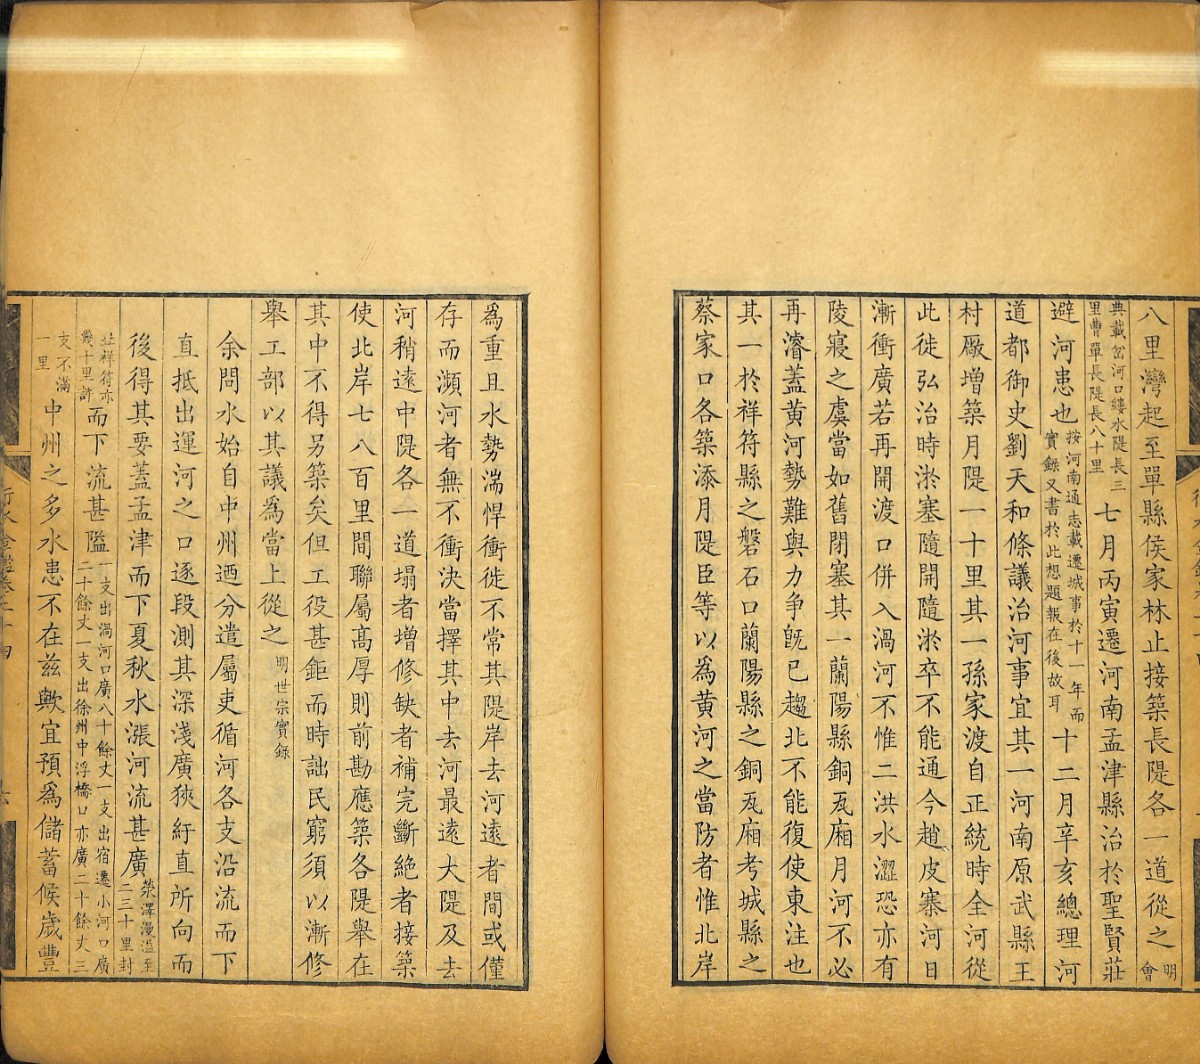 八里灣起至單縣侯家林止接築長隄各一道從之明會
典載岔河口縷水隄長三里曹單長隄長八十里七月丙寅遷河南孟津縣治於聖賢莊
避河患也按河南通志載遷城事於十一年而實錄又書於此想題報在後故耳十二月辛亥總理河
道都御史劉天和條議治河事宜其一河南原武縣王
村厰增築月隄一十里其一孫家渡自正統時全河從
此徙弘治時淤塞隨開隨淤卒不能通今趙皮寨河日
漸衝廣若再開渡口併入渦河不惟二洪水澀恐亦有
陵寢之虞當如舊閉塞其一蘭陽縣銅瓦廂月河不必
再濬蓋黃河勢難與力争旣已趨北不能復使東注也
其一於祥符縣之磐石口蘭陽縣之銅瓦廂考城縣之
蔡家口各築添月隄臣等以為黃河之當防者惟北岸
為重且水勢湍悍衝徙不常其隄岸去河遠者間或僅
存而瀕河者無不衝決當擇其中去河最遠大隄及去
河稍遠中隄各一道塌者增修缺者補完斷絕者接築
使北岸七八百里間聯屬高厚則前勘應築各隄舉在
其中不得另築矣但工役甚鉅而時詘民窮須以漸修
舉工部以其議為當上從之明世宗實錄
余問水始自中州迺分遣屬吏循河各支沿流而下
直抵出運河之口逐段測其深淺廣狹紆直所向而
後得其要蓋孟津而下夏秋水漲河流甚廣滎澤漫溢至二三十里封
丘祥符亦幾十里許而下流甚隘一支出渦河口廣八十餘丈一支出宿遷小河口廣二十餘丈一支出徐州中浮橋口亦廣二十餘丈三
支不滿一里中州之多水患不在兹歟宜預為儲蓄候歲豐